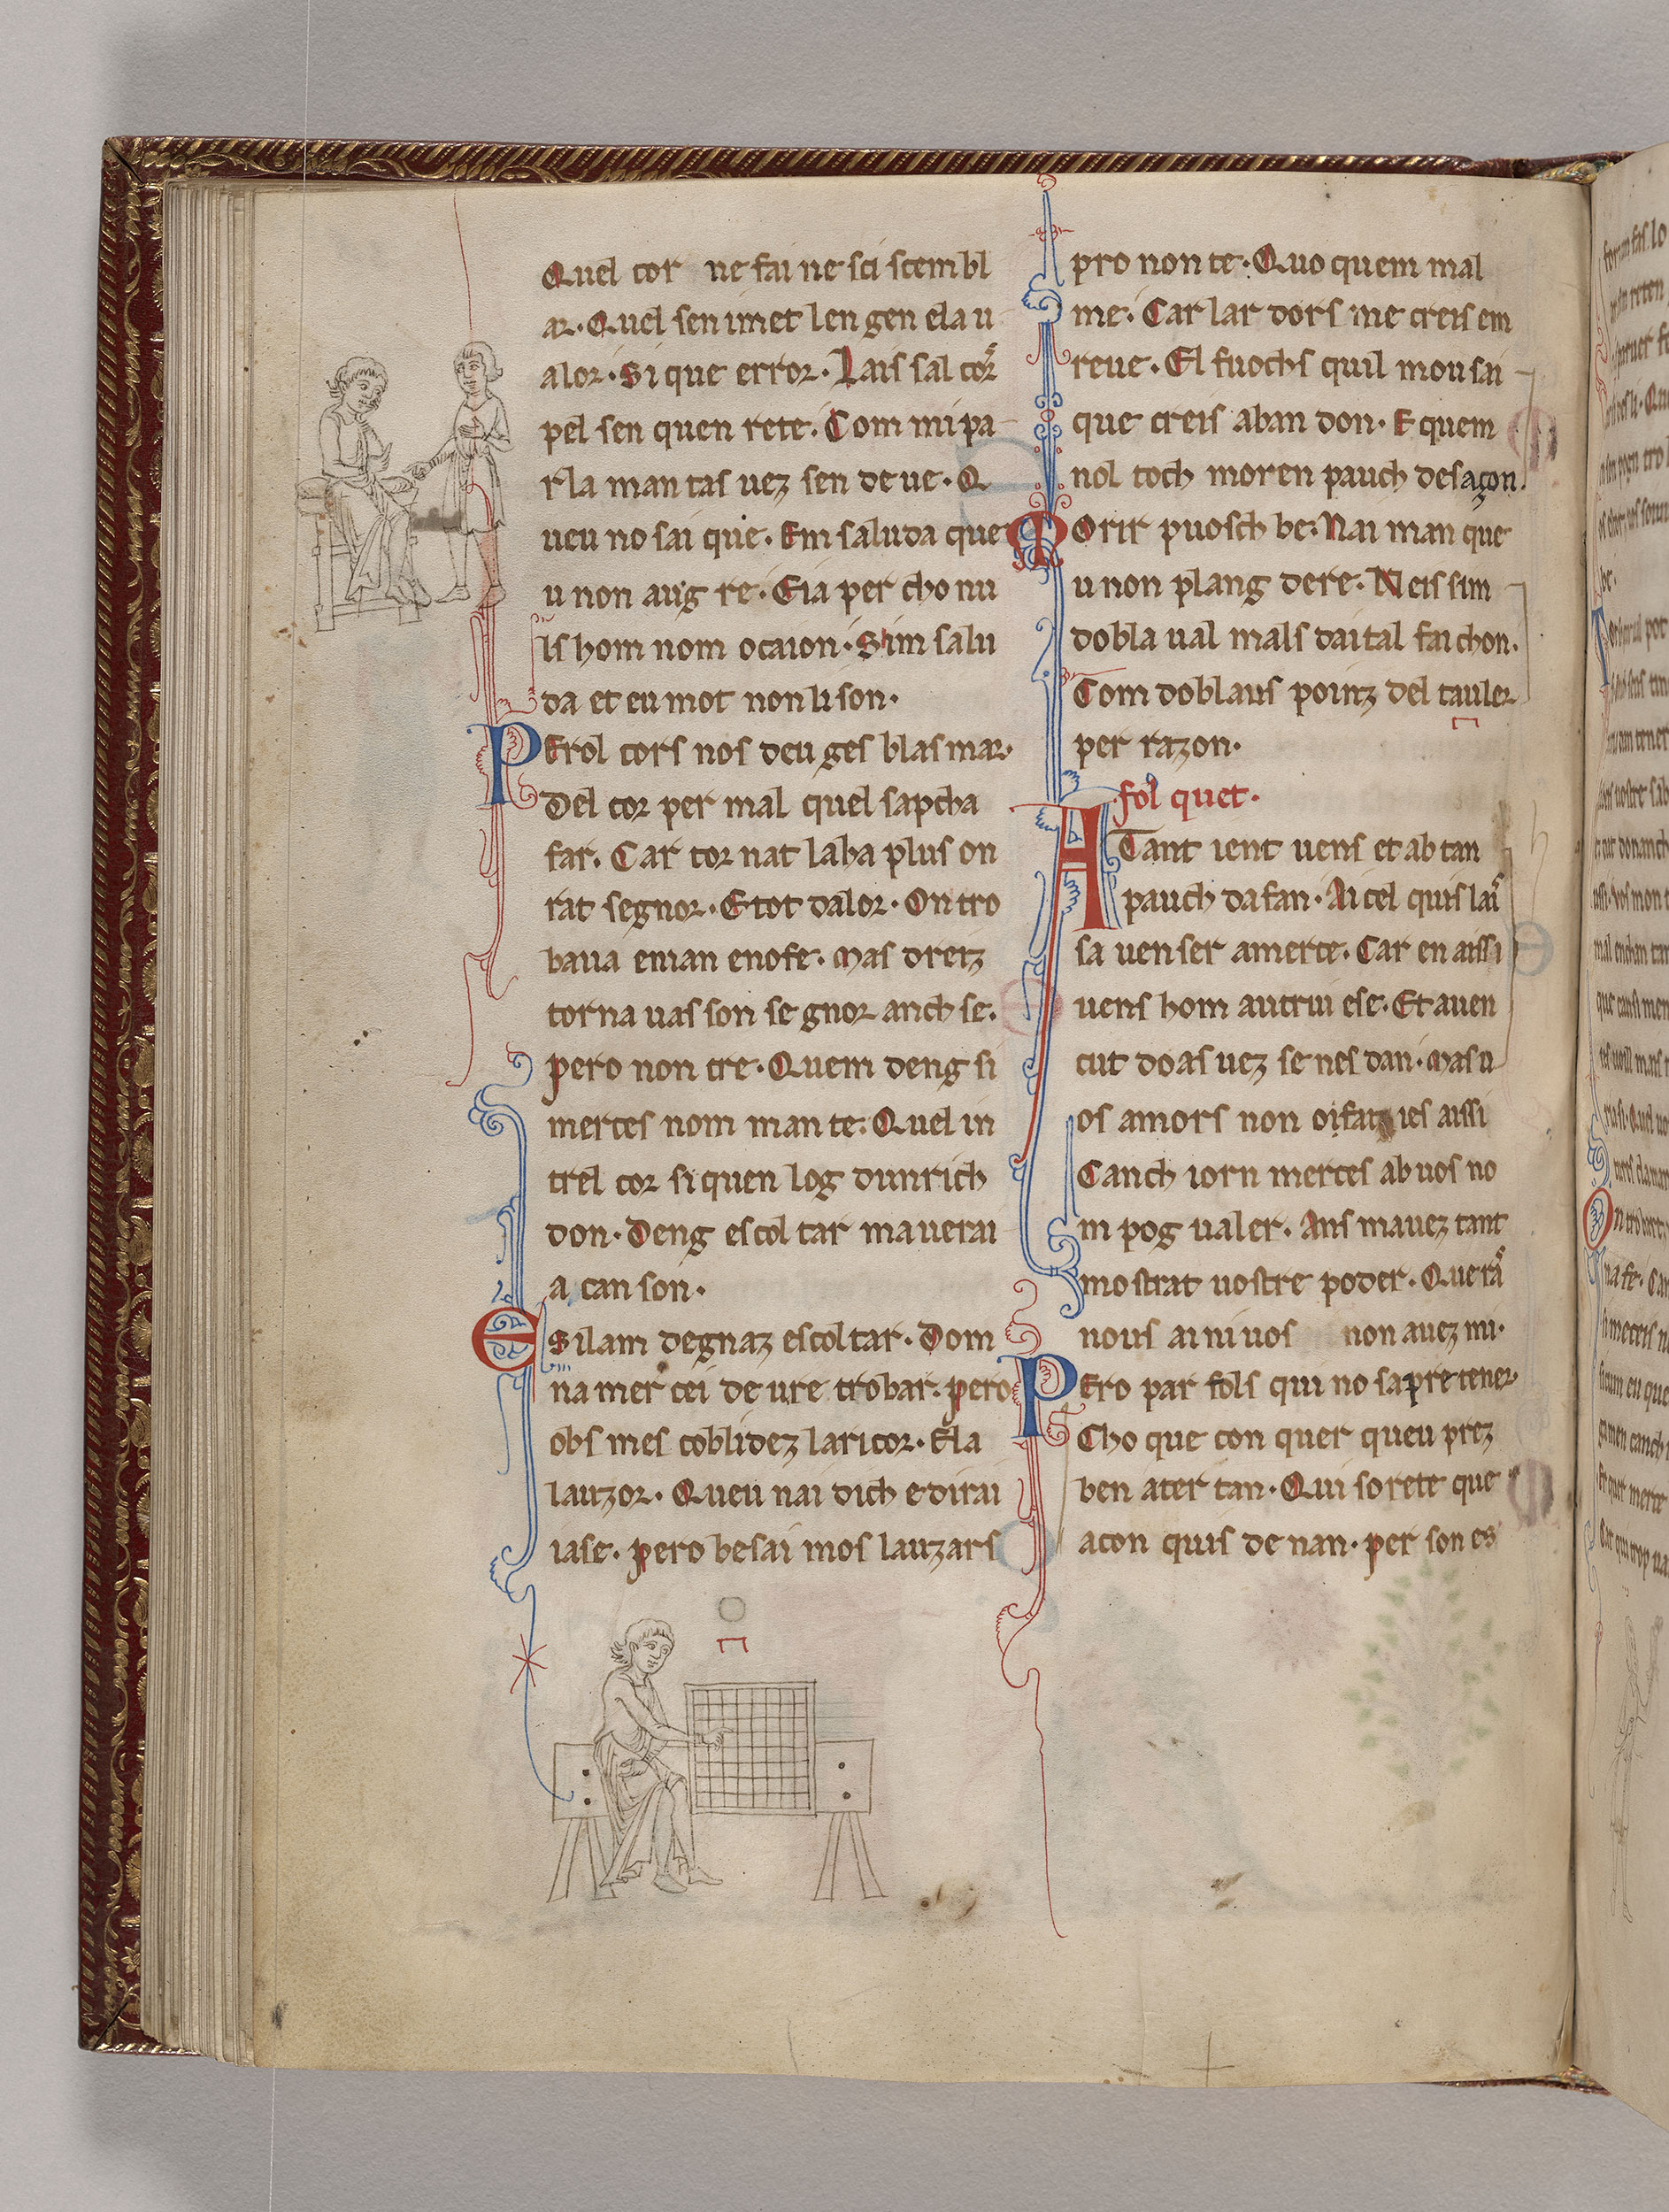 Quel cor ne fai ne sci scembl
ar. Quel sen imet len gen ela u
alor. Si que error. Lais sal cor
pel sen quen rete. Com mi pa
rla man tas uez sen deue. Q
ueu no sai que. Em saluda que
u non aug re. Eia per cho nu
ls hom nom ocaion. Sim salu
da et eu mot non li son.
PErol cors nos deu ges blas mar.
Del cor per mal quel sapcha
far. Car tor nat laba plus on
rat segnor. E tot dalor. On tro
baua enian enofe. Mas dreiz
torna uas son se gnor anch se.
pero non cre. Quem deng si
merces nom man te. Quel in
trel cor si quen log dun rich
don. Deng escol tar ma uerai
a can son.
E Silam degnaz escoltar. Dom
na mer cei deure trobar. pero
obs mes coblidez la ricor. Ela
lauzor. Queu nai dich e dirai
iase. pero be sai mos lauzars
pro non te. Quo quem mal
me. Car lar dors me creis em
reue. El fuochs quil mou sai
que creis aban don. E quem
nol toch mor en pauch de saçon.
MOrir puosch be. Nai man que
u non plang dere. Neis sim
dobla ual mals dai tal faichon.
Com doblaus poinz del tauler
per razon.
fol quet.
ATant ient uens et ab tan
pauch da fan. Ai cel quis lai
sa uenser a merce. Car en aissi
uens hom autrui e se. Et auen
cut doas uez se nes dan. Mas u
os amors non o faz ies aissi
Canch iorn merces ab uos no
m pog ualer. Ans mauez tant
mostrat uostre poder. Quera
nous ai ni uos non auez mi.
PEro par fols qui no sap re tener.
Cho que con quer queu prez
ben ater tan. Qui so rete que
a con quis de nan. per son es